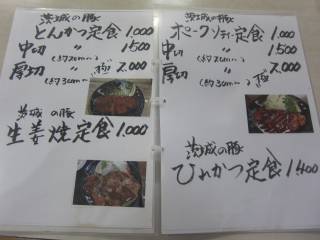 茨城の豚
とんかつ定食 1.000
中切 〃 1500
(約2cm)
厚切 〃 2.000
(約3cm) "極"
茨城の豚
生姜焼定食 1.000
茨城の豚
ポークソテー定食 1.000
中切 〃 1500
(約2cm)
厚切 〃 2.000
(約3cm) 極
茨城の豚
ひれかつ定食 1400